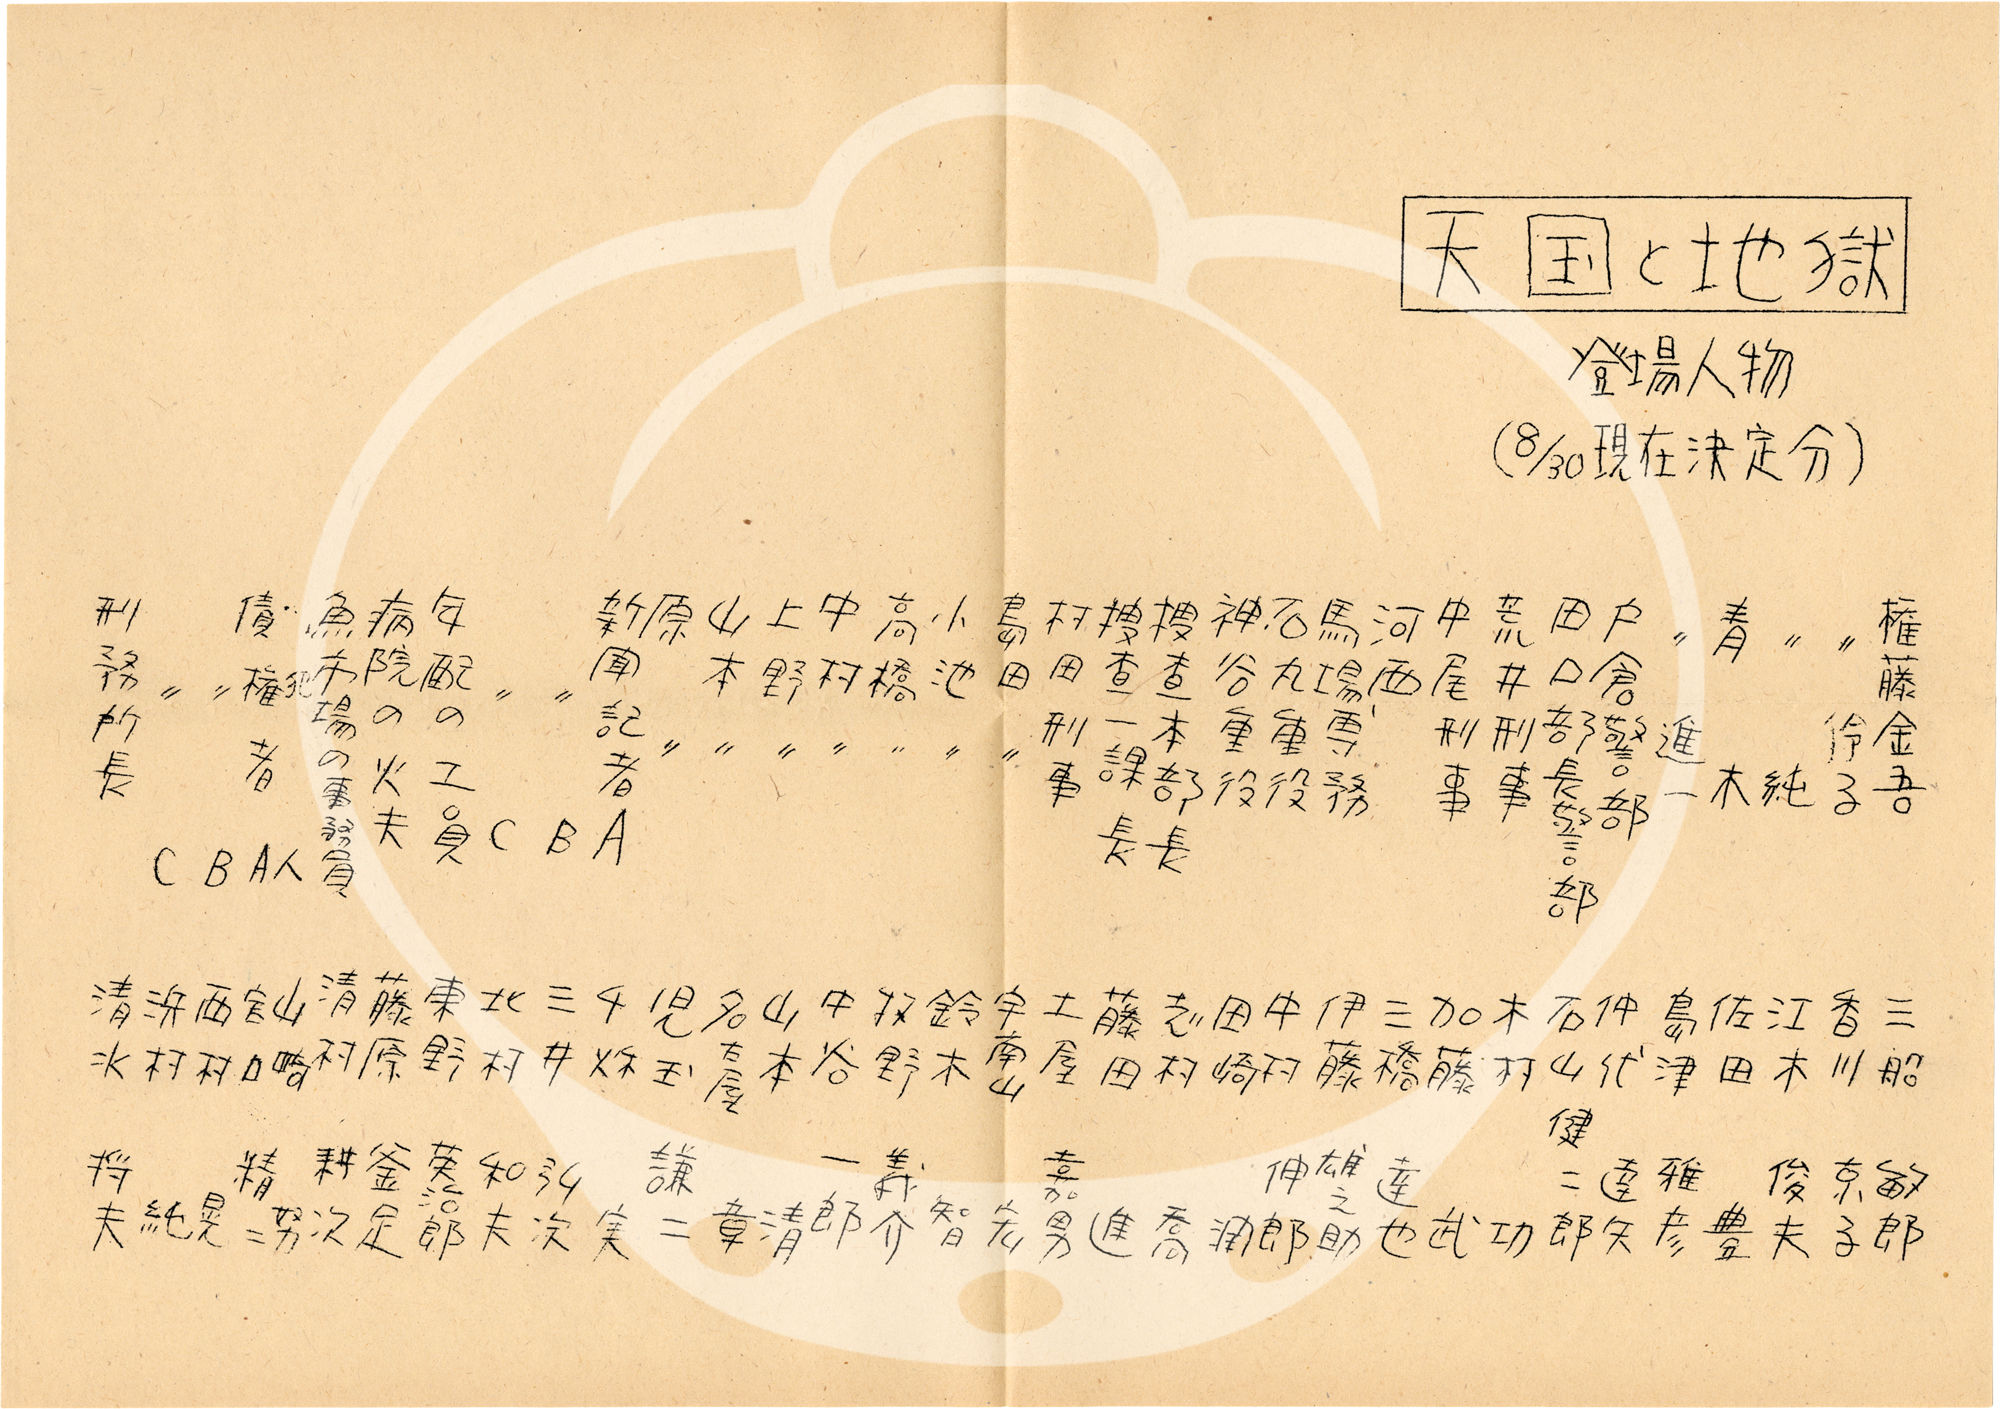 天国と地獄
登場人物
(8/30現在決定分)
権藤金吾 三船敏郎
〃 伶子 香川京子
〃 純 江木俊夫
青木 佐田豊
〃 進一 島津雅彦
戸倉警部 仲代達矢
田口部長警部 石山健二郎
荒井刑事 木村功
中尾刑事 加藤武
河西 三橋達也
馬場専務 伊藤雄之助
石丸重役 中村伸郎
神谷重役 田崎潤
捜査本部長 志村喬
捜査一課長 藤田進
村田刑事 土屋嘉男
島田〃 宇南山宏
小池〃 鈴木智
高橋〃 牧野義介
中村〃 中谷一郎
上野〃 山本清
山本〃 名古屋章
原〃 児玉謙二
新聞記者A 千秋実
〃B 三井弘次
〃C 北村和夫
年配の工員 東野英治郎
病院の火夫 藤原釜足
魚市場の事務員 清村耕次
犯人 山崎努
債権者A 宮口精二
〃B 西村晃
〃C 浜村純
刑務所長 清水将夫